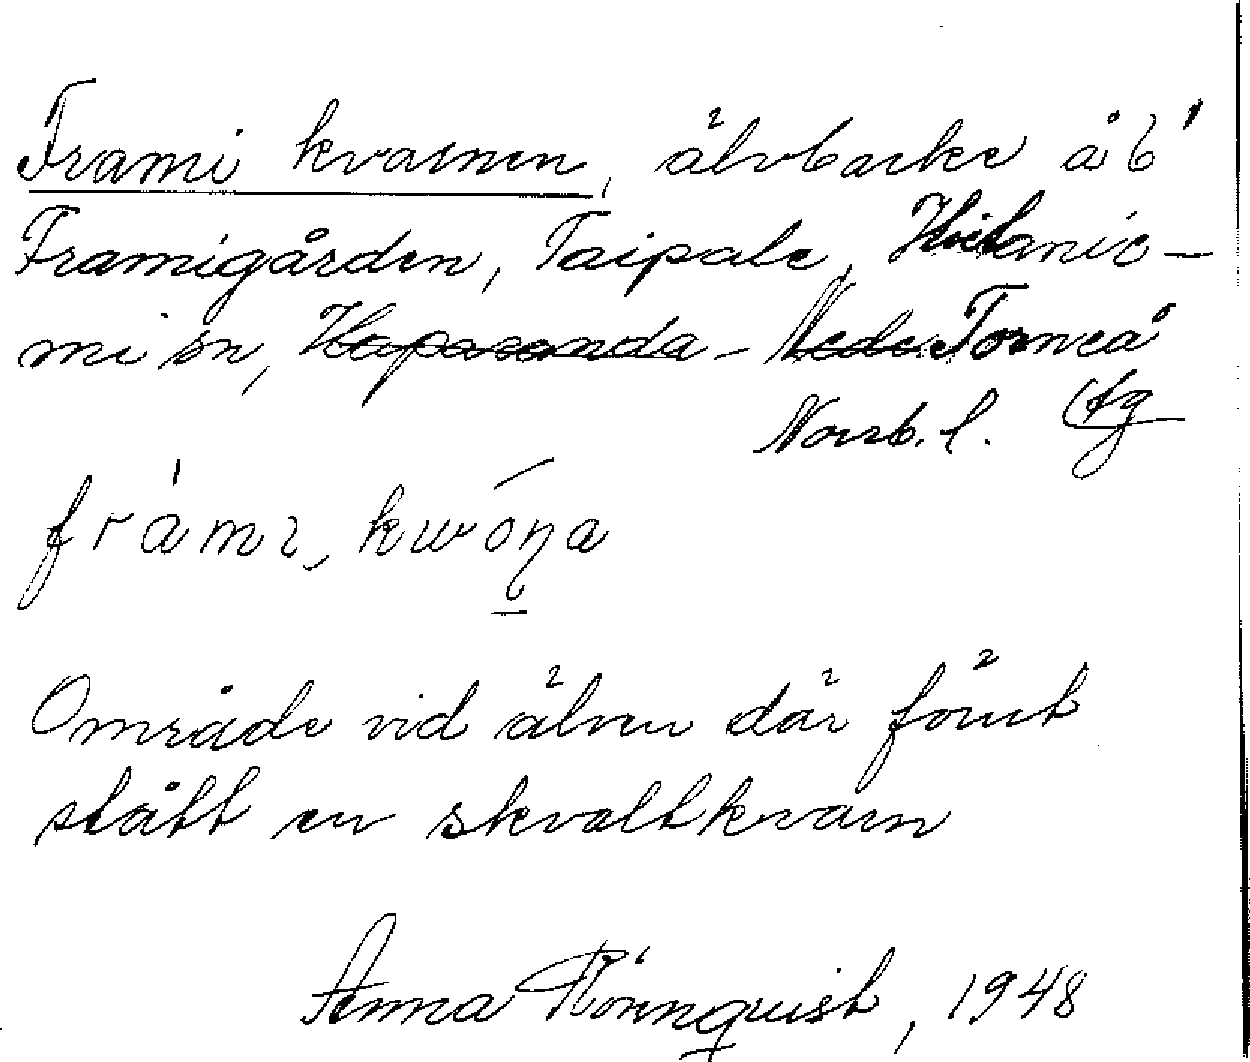 Frami kvarnen, älvbacke åt
Framigården, Taipale, Hietanie-
mi sn, Haparanda - Neder Torneå
Norrb. l.
frami, kwóṇa
Område vid älven där förut
stått en skvaltkvarn
Anna Rönnquist, 1948